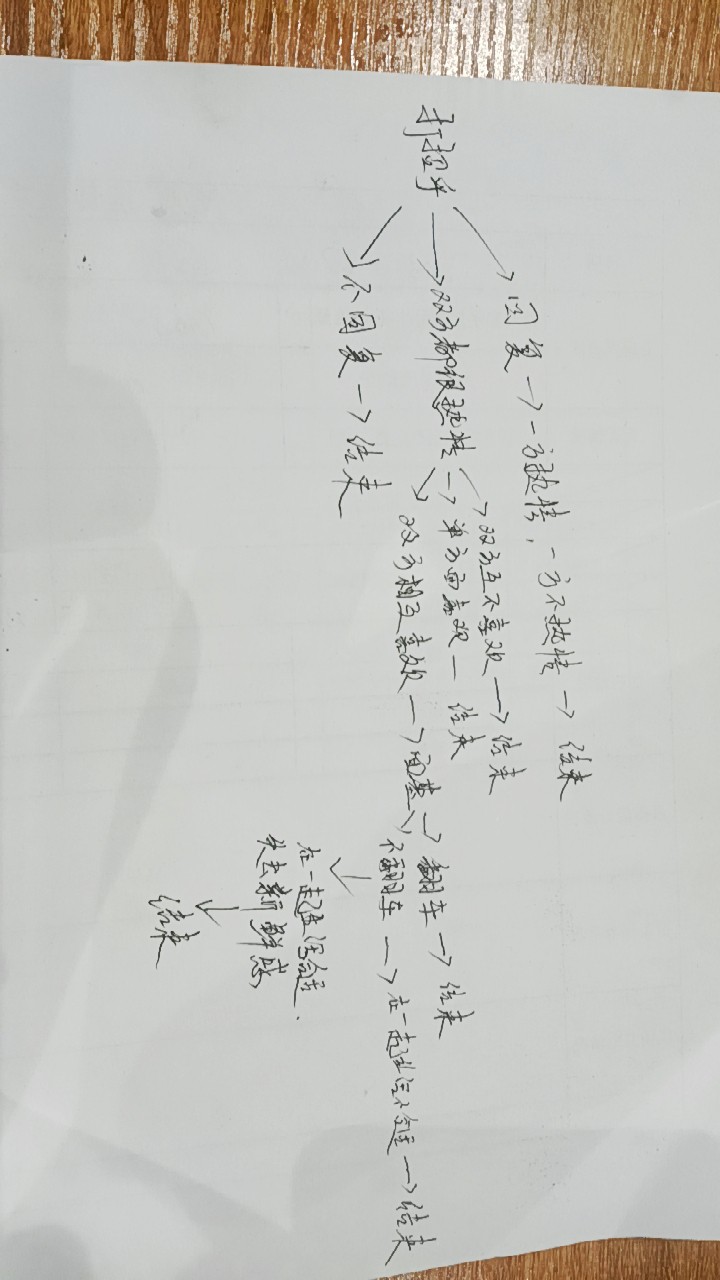 打招呼
→回复→一方热情，一方不热情→结束
→双方都很热情
→双方互不喜欢→结束
→单方面喜欢—结束
→双方相互喜欢→面基
→翻车→结束
→不翻车→在一起性不合适→结束
→在一起合适.
失去新鲜感
→结束
→不回复→结束